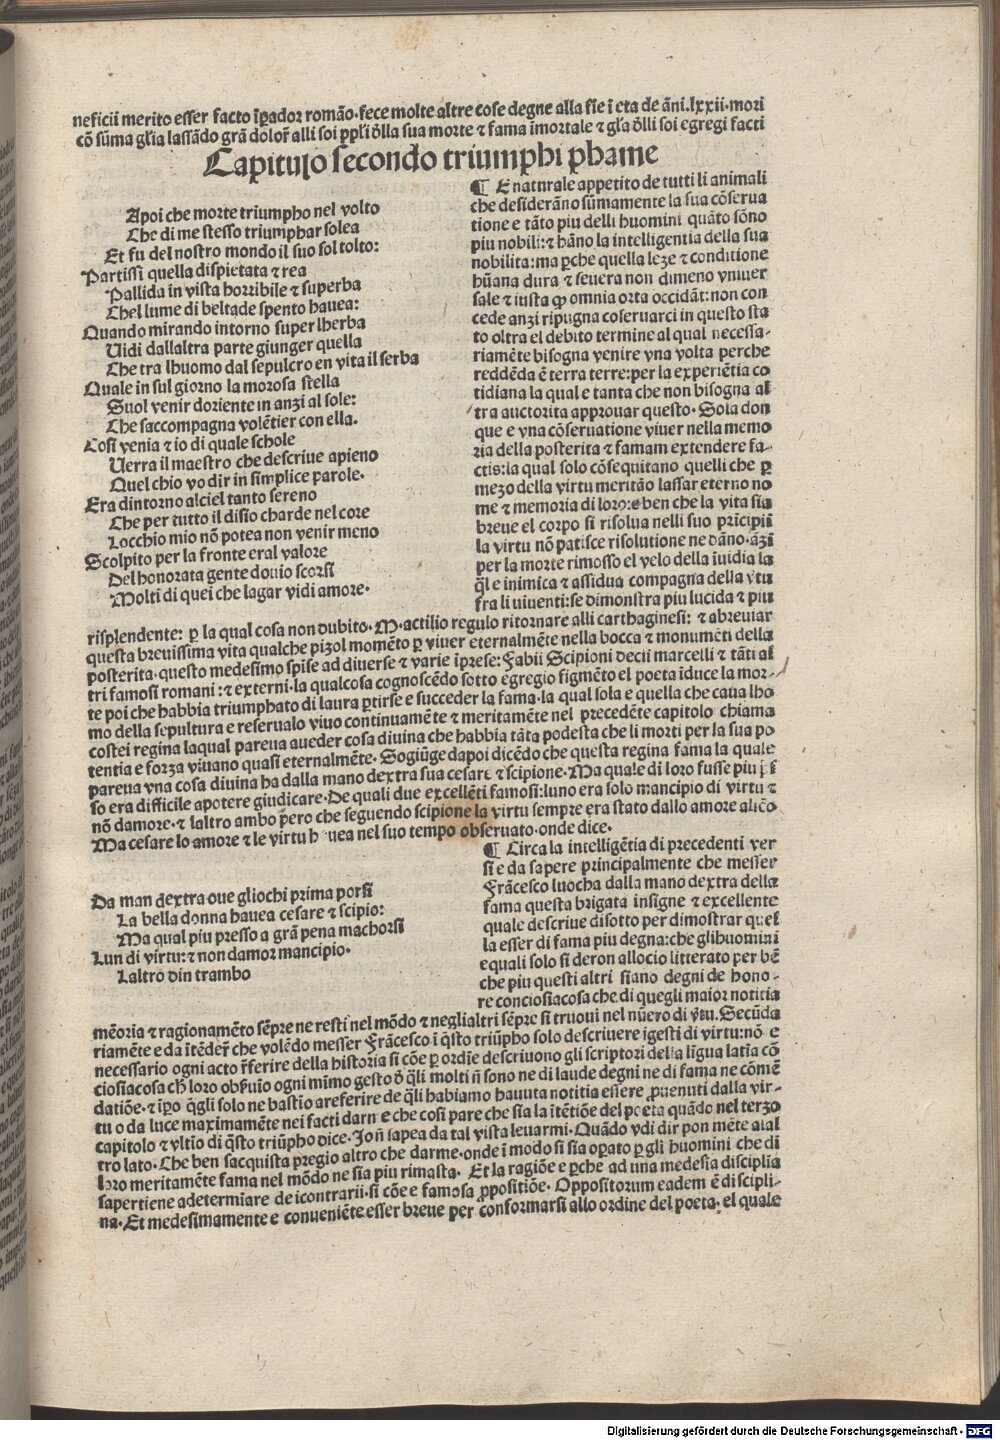 neficii merito esser facto īpador romāo·fece molte altre cose degne alla fīe ī eta de āni.lxxii·mori
cō sūma gl̄ia lassādo grā dolor̄ alli soi ppl̄i d̄lla sua morte ⁊ fama īmortale ⁊ gl̄a d̄lli soi egregi facti
Capitulo secondo triumphi phame
Apoi che morte triumpho nel volto
Che di me stesso triumphar solea
Et fu del nostro mondo il suo sol tolto:
Partissi quella dispietata ⁊ rea
Pallida in vista horribile ⁊ superba
Chel lume di beltade spento hauea:
Quando mirando intorno super lherba
Uidi dallaltra parte giunger quella
Che tra lhuomo dal sepulcro en vita il serba
Quale in sul giorno la morosa stella
Suol venir doriente in anzi al sole:
Che saccompagna volētier con ella.
Cosi venia ⁊ io di quale schole
Uerra il maestro che descriue apieno
Quel chio vo dir in simplice parole·
Era dintorno alciel tanto sereno
Che per tutto il disio charde nel core
Locchio mio nō potea non venir meno
Scolpito per la fronte eral valore
Del honorata gente douio scorsi
Molti di quei che lagar vidi amore·
¶ E naturale appetito de tutti li animali
che desiderāno sūmamente la sua cōserua
tione e tāto piu delli huomini quāto sōno
piu nobili:⁊ hāno la intelligentia della sua
nobilita:ma pche quella leze ⁊ conditione
hūana dura ⁊ seuera non dimeno vniuer
sale ⁊ iusta qꝫ omnia orta occidāt:non con
cede anzi ripugna coseruarci in questo sta
to oltra el debito termine al qual necessa-
riamēte bisogna venire vna volta perche
reddēda ē terra terre:per la experiētia co
tidiana la qual e tanta che non bisogna al
tra auctorita approuar questo· Sola don
que e vna cōseruatione viuer nella memo
ria della posterita ⁊ famam extendere fa-
ctis:la qual solo cōsequitano quelli che p
mezo della virtu meritāo lassar eterno no
me ⁊ memoria di loro:e ben che la vita sia
breue el corpo si risolua nelli suo prīcipii
la virtu nō patisce risolutione ne dāno·āzi
per la morte rimosso el velo della īuidia la
q̄l e inimica ⁊ assidua compagna della vtu
fra li viuenti:se dimonstra piu lucida ⁊ piu
risplendente: p la qual cosa non dubito·M·actilio regulo ritornare alli carthaginesi: ⁊ abreuiar
questa breuissima vita qualche pizol momēto p viuer eternalmēte nella bocca ⁊ monumēti della
posterita·questo medesimo spise ad diuerse ⁊ varie īprese:Fabii Scipioni decii marcelli ⁊ tāti al
tri famosi romani :⁊ externi·la qualcosa cognoscēdo sotto egregio figmēto el poeta īduce la mor-
te poi che habbia triumphato di laura ptirse e succeder la fama·la qual sola e quella che caua lho
mo della sepultura e reserualo viuo continuamēte ⁊ meritamēte nel precedēte capitolo chiama
costei regina laqual pareua aueder cosa diuina che habbia tāta podesta che li morti per la sua po
tentia e forza viuano quasi eternalmēte· Sogiūge dapoi dicēdo che questa regina fama la quale
pareua vna cosa diuina ha dalla mano dextra sua cesare ⁊ scipione·Ma quale di loro fusse piu
so era difficile apotere giudicare·De quali due excellēti famosi:luno era solo mancipio di virtu ⁊
nō damore·⁊ laltro ambo pero che seguendo scipione la virtu sempre era stato dallo amore aliēo
Ma cesare lo amore ⁊ le virtu hauea nel suo tempo obseruato·onde dice·
Da man dextra oue gliochi prima porsi
La bella donna hauea cesare ⁊ scipio:
Ma qual piu presso a grā pena machorsi
Lun di virtu:⁊ non damor mancipio·
Laltro din trambo
¶ Circa la intelligētia di precedenti ver
si e da sapere principalmente che messer
Frācesco luocha dalla mano dextra della
fama questa brigata insigne ⁊ excellente
quale descriue disotto per dimostrar quel
la esser di fama piu degna:che glihuomini
equali solo si deron allocio litterato per bē
che piu questi altri siano degni de hono-
re conciosiacosa che di quegli maior notitia
mēoria ⁊ ragionamēto sēpre ne resti nel mōdo ⁊ neglialtri sēpre si truoui nel nūero di v̄tu.Secūda
riamēte e da ītēder̄ che volēdo messer Frācesco ī q̄sto triūpho solo descriuere igesti di virtu:nō e
necessario ogni acto r̄ferire della historia si cōe p ordīe descriuono gli scriptori della līgua latīa cō
ciosiacosa ch̄ loro obseruīo ogni mīmo gesto d̄ q̄li molti n̄ sono ne di laude degni ne di fama ne cōmē
datiōe·⁊ īpo q̄gli solo ne bastīo areferire de q̄li habiamo hauuta notitia essere puenuti dalla vir-
tu o da luce maximamēte nei facti darme che cosi pare che sia la ītētiōe del poeta quādo nel terzo
capitolo ⁊ vltīo di q̄sto triūpho dice·Io n̄ sapea da tal vista leuarmi·Quādo vdi dir pon mēte alal
tro lato·Che ben sacquista pregio altro che darme·onde ī modo si sia opato p gli huomini che di
loro meritamēte fama nel mōdo ne sia piu rimasta· Et la ragiōe e pche ad una medesia disciplīa
sapertiene adetermīare de icontrarii·si cōe e famosa ppositiōe· Oppositorum eadem ē discipli-
na·Et medesimamente e conueniēte esser breue per conformarsi allo ordine del poeta· el quale
Digitalisierung gefördert durch die Deutsche Forschungsgemeinschaft - DFG